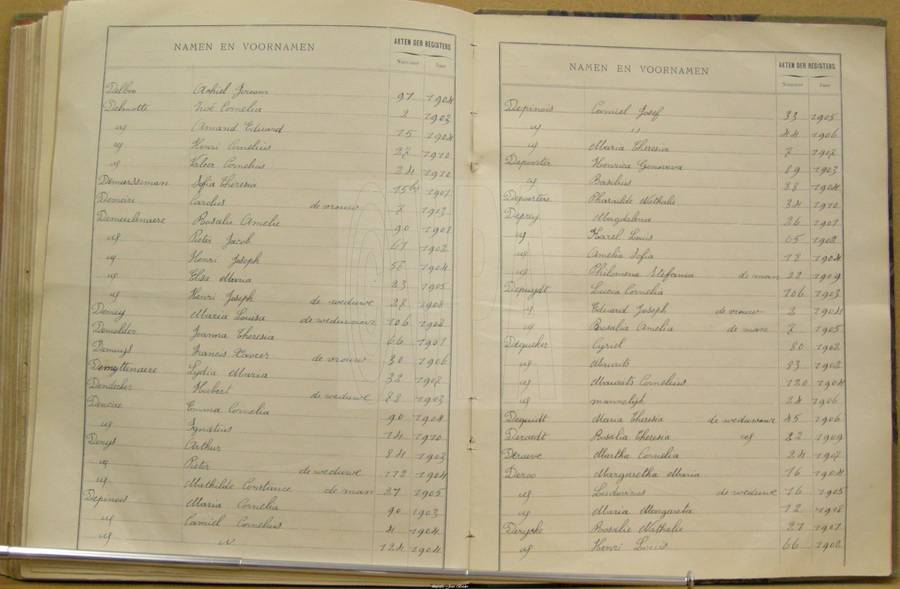 NAMEN EN VOORNAMEN AKTEN DER REGISTERS
Nummer Jaar
Delboo Achiel Jeroom 97 1904
Delmotte Noë Cornelia 2 1903
id Amand Eduard 15 1904
id Henri Cornelius 27 1910
id Valeer Cornelius 24 1910
Demarseman Sofia Theresia 15 1901
Demeire Carolus de vrouw 7 1903
Demeulenaere Rosalie Amelie 90 1908
id Pieter Jacob 67 1902
id Henri Joseph 1904
id Elisa Maria 23 1905
id Henri Joseph de weduwe 28 1908
Demey Maria Louisa de weduwnaar 106 1908
Demolder Joanna Theresia 66 1901
Demuys Francis Xavier de vrouw 30 1906
Demuyttenaere Lydia Maria 32 1907
Dendecker Hubert de weduwe 88 1903
Deneire Emma Cornelia 90 1904
id Ignatius 14 1910
Denys Arthur 84 1902
id Pieter de weduwe 112 1904
id Mathilde Constance de man 27 1905
Depinois Maria Cornelia 90 1903
id Camiel Cornelius 4 1904
id " 124 1904
NAMEN EN VOORNAMEN AKTEN DER REGISTERS
Nummer Jaar
Depinois Camiel Josef 33 1905
id " 44 1906
id Maria Theresia 7 1907
Deporter Henrica Genoveva 89 1903
id Basilius 88 1904
Deportere Pharaïlde Nathalie 34 1910
Deprey Magdalena 26 1901
id Karel Louis 65 1902
id Amelia Sofia 18 1904
id Philomena Stefania de man 22 1909
Depuydt Lucia Cornelia 106 1903
id Eduard Joseph de vrouw 2 1904
id Rosalia Amelia de man 7 1905
Dequeker Cyriel 80 1902
id Maurits 83 1902
id Maurits Cornelius 120 1904
id mannelijk 24 1906
Dequidt Maria Theresia de weduwnaar 45 1906
Deraedt Rosalia Theresia id 22 1909
Deraeve Martha Cornelia 24 1907
Deroo Margaretha Maria 16 1904
id Ludovicus de weduwe 16 1905
id Maria Margareta 12 1908
Derycke Rosalie Nathalie 27 1901
id Henri Louis 66 1902